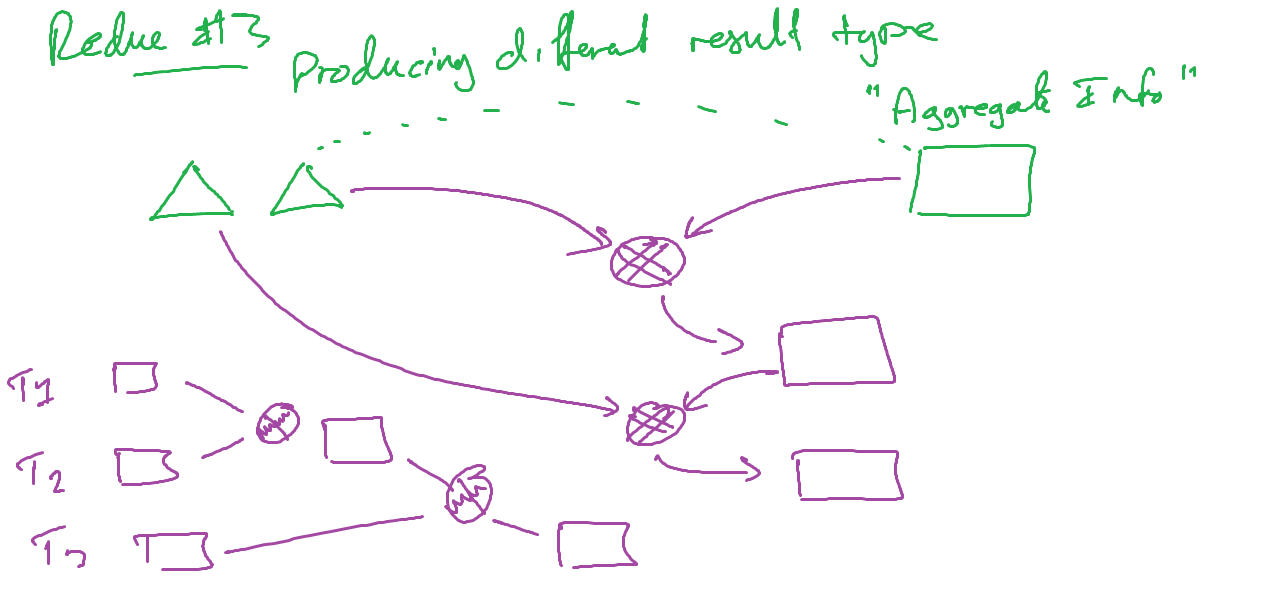 Redue #3
Producing different result type
"Aggregate Info"
T1
T2
T3